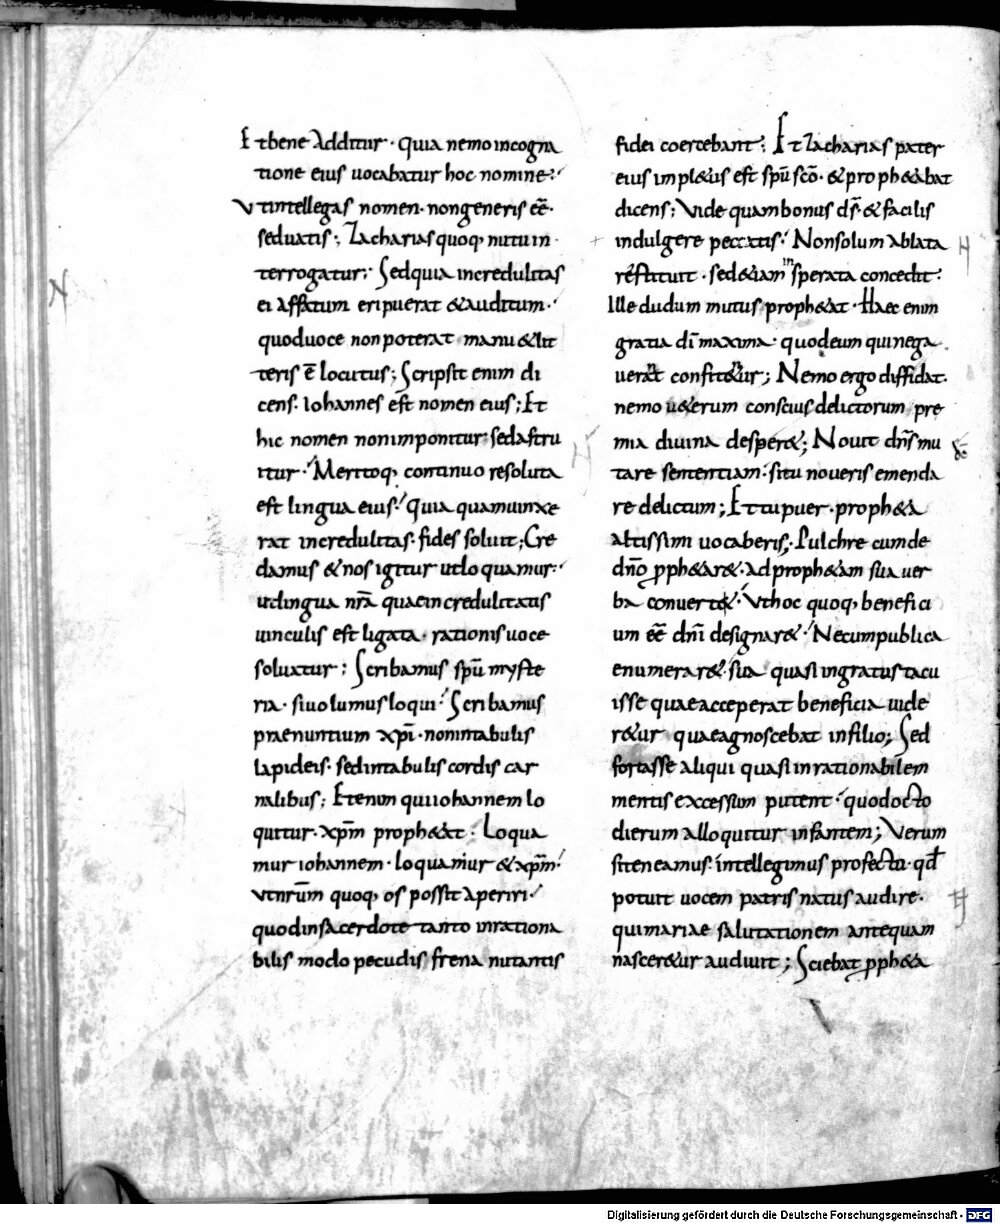 Et bene additur · quia nemo in cogna
tione eius uocabatur hoc nomine ·
Ut intellegas nomen · non generis eē
sed uatis ; Zacharias quoq; nutu in
terrogatur ; Sed quia incredulitas
ei affatum eripuerat & auditum ·
quod uoce non poterat manu & lit
teris ē locutus ; Scripsit enim di
cens · Iohannes est nomen eius ; Et
hic nomen non imponitur sed astru
itur · Meritoq; continuo resoluta
est lingua eius · Quia quam uinxe
rat incredulitas · fides soluit ; Cre
damus & nos igitur ut loquamur ·
ut lingua nr̄a quae incredulitatis
uinculis est ligata · rationis uoce
soluatur ; Scribamus spū myste
ria · si uolumus loqui · Scribamus
praenuntium xp̄i · non in tabulis
lapideis · sed in tabulis cordis car
nalibus ; Etenim qui iohannem lo
quitur · xp̄m proph&at · Loqua
mur iohannem · loquamur & xp̄m ·
ut nr̄um quoq; os possit aperiri ·
quod in sacerdote tanto inrationa
bilis modo pecudis frena nutantis
fidei coercebant ; Et Zacharias pater
eius impl&us est spū scō · & proph&abat
dicens ; Vide quam bonus d̄s · & facilis
indulgere peccatis · Non solum ablata
restituit · sed &iam insperata concedit ·
Ille dudum mutus proph&at · Haec enim
gratia dī maxima · quod eum qui nega
uerat confit&ur ; Nemo ergo diffidat ·
nemo u&erum conscius delictorum pre
mia diuina desper& ; Nouit dn̄s mu
tare sententiam · si tu noueris emenda
re delictum ; Et tu puer · proph&a
altissimi uocaberis · Pulchre cum de
dn̄o pph&ar& · ad proph&am sua uer
ba conuertit · Ut hoc quoq; benefici
um eē dn̄i designar& · Ne cum publica
enumerar& · sua quasi ingratus tacu
isse quae acceperat beneficia uide
r&ur quae agnoscebat in filio ; Sed
fortasse aliqui quasi inrationabilem
mentis excessum putent · quod octo
dierum alloquitur infantem ; Verum
si teneamus · intellegimus profecto · qd̄
potuit uocem patris natus audire ·
qui mariae salutationem antequam
nascer&ur audiuit ; Sciebat pph&a
Digitalisierung gefördert durch die Deutsche Forschungsgemeinschaft - DFG